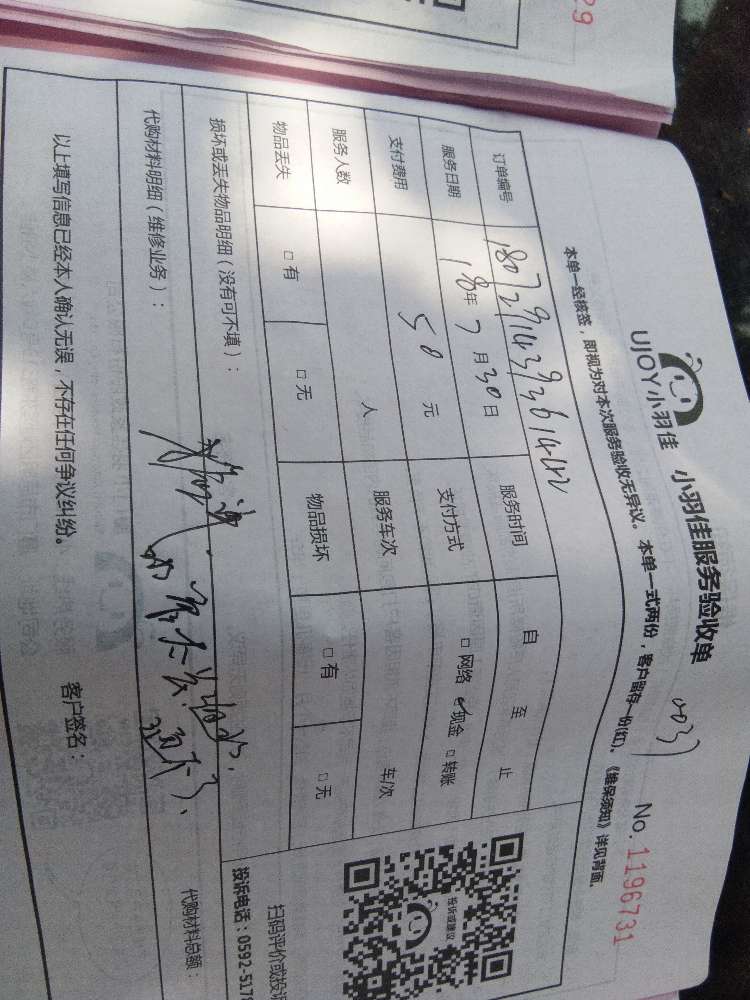 29
UJOY小羽佳 小羽佳服务验收单 No. 1196731
本单一经核签，即视为对本次服务验收无异议。本单一式两份，客户留存一份(红)。《维保须知》详见背面。
订单编号 服务时间 自 至 止
服务日期 18年7月30日 支付方式 □网络 现金 □转账
支付费用 50元 服务车次 车/次
服务人数 人 物品损坏 □有 □无
物品丢失 □有 □无
投诉或建议
扫码评价或投诉
投诉电话：0592-5178
损坏或丢失物品明细（没有可不填）：
代购材料明细（维修业务）： 代购材料总额：
以上填写信息已经本人确认无误，不存在任何争议纠纷。 客户签名：